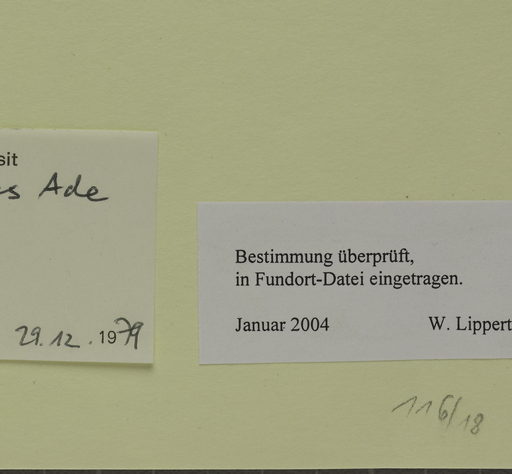 sit
s Ade
29.12.1979
Bestimmung überprüft,
in Fundort-Datei eingetragen.
Januar 2004 W. Lippert
116/18